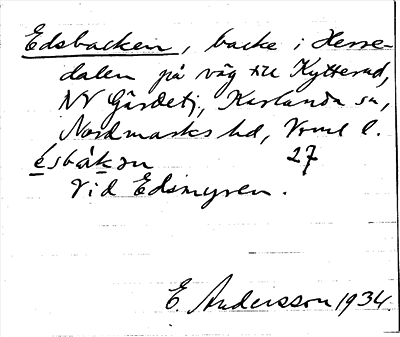 Edsbacken, backe i Herre-
dalen på väg till Kytterud,
NV Gärdetj, Karlanda sn,
Nordmarks hd, Vrml l.
ésbàkɔn 27
Vid Edsmyren.
E. Andersson 1934.